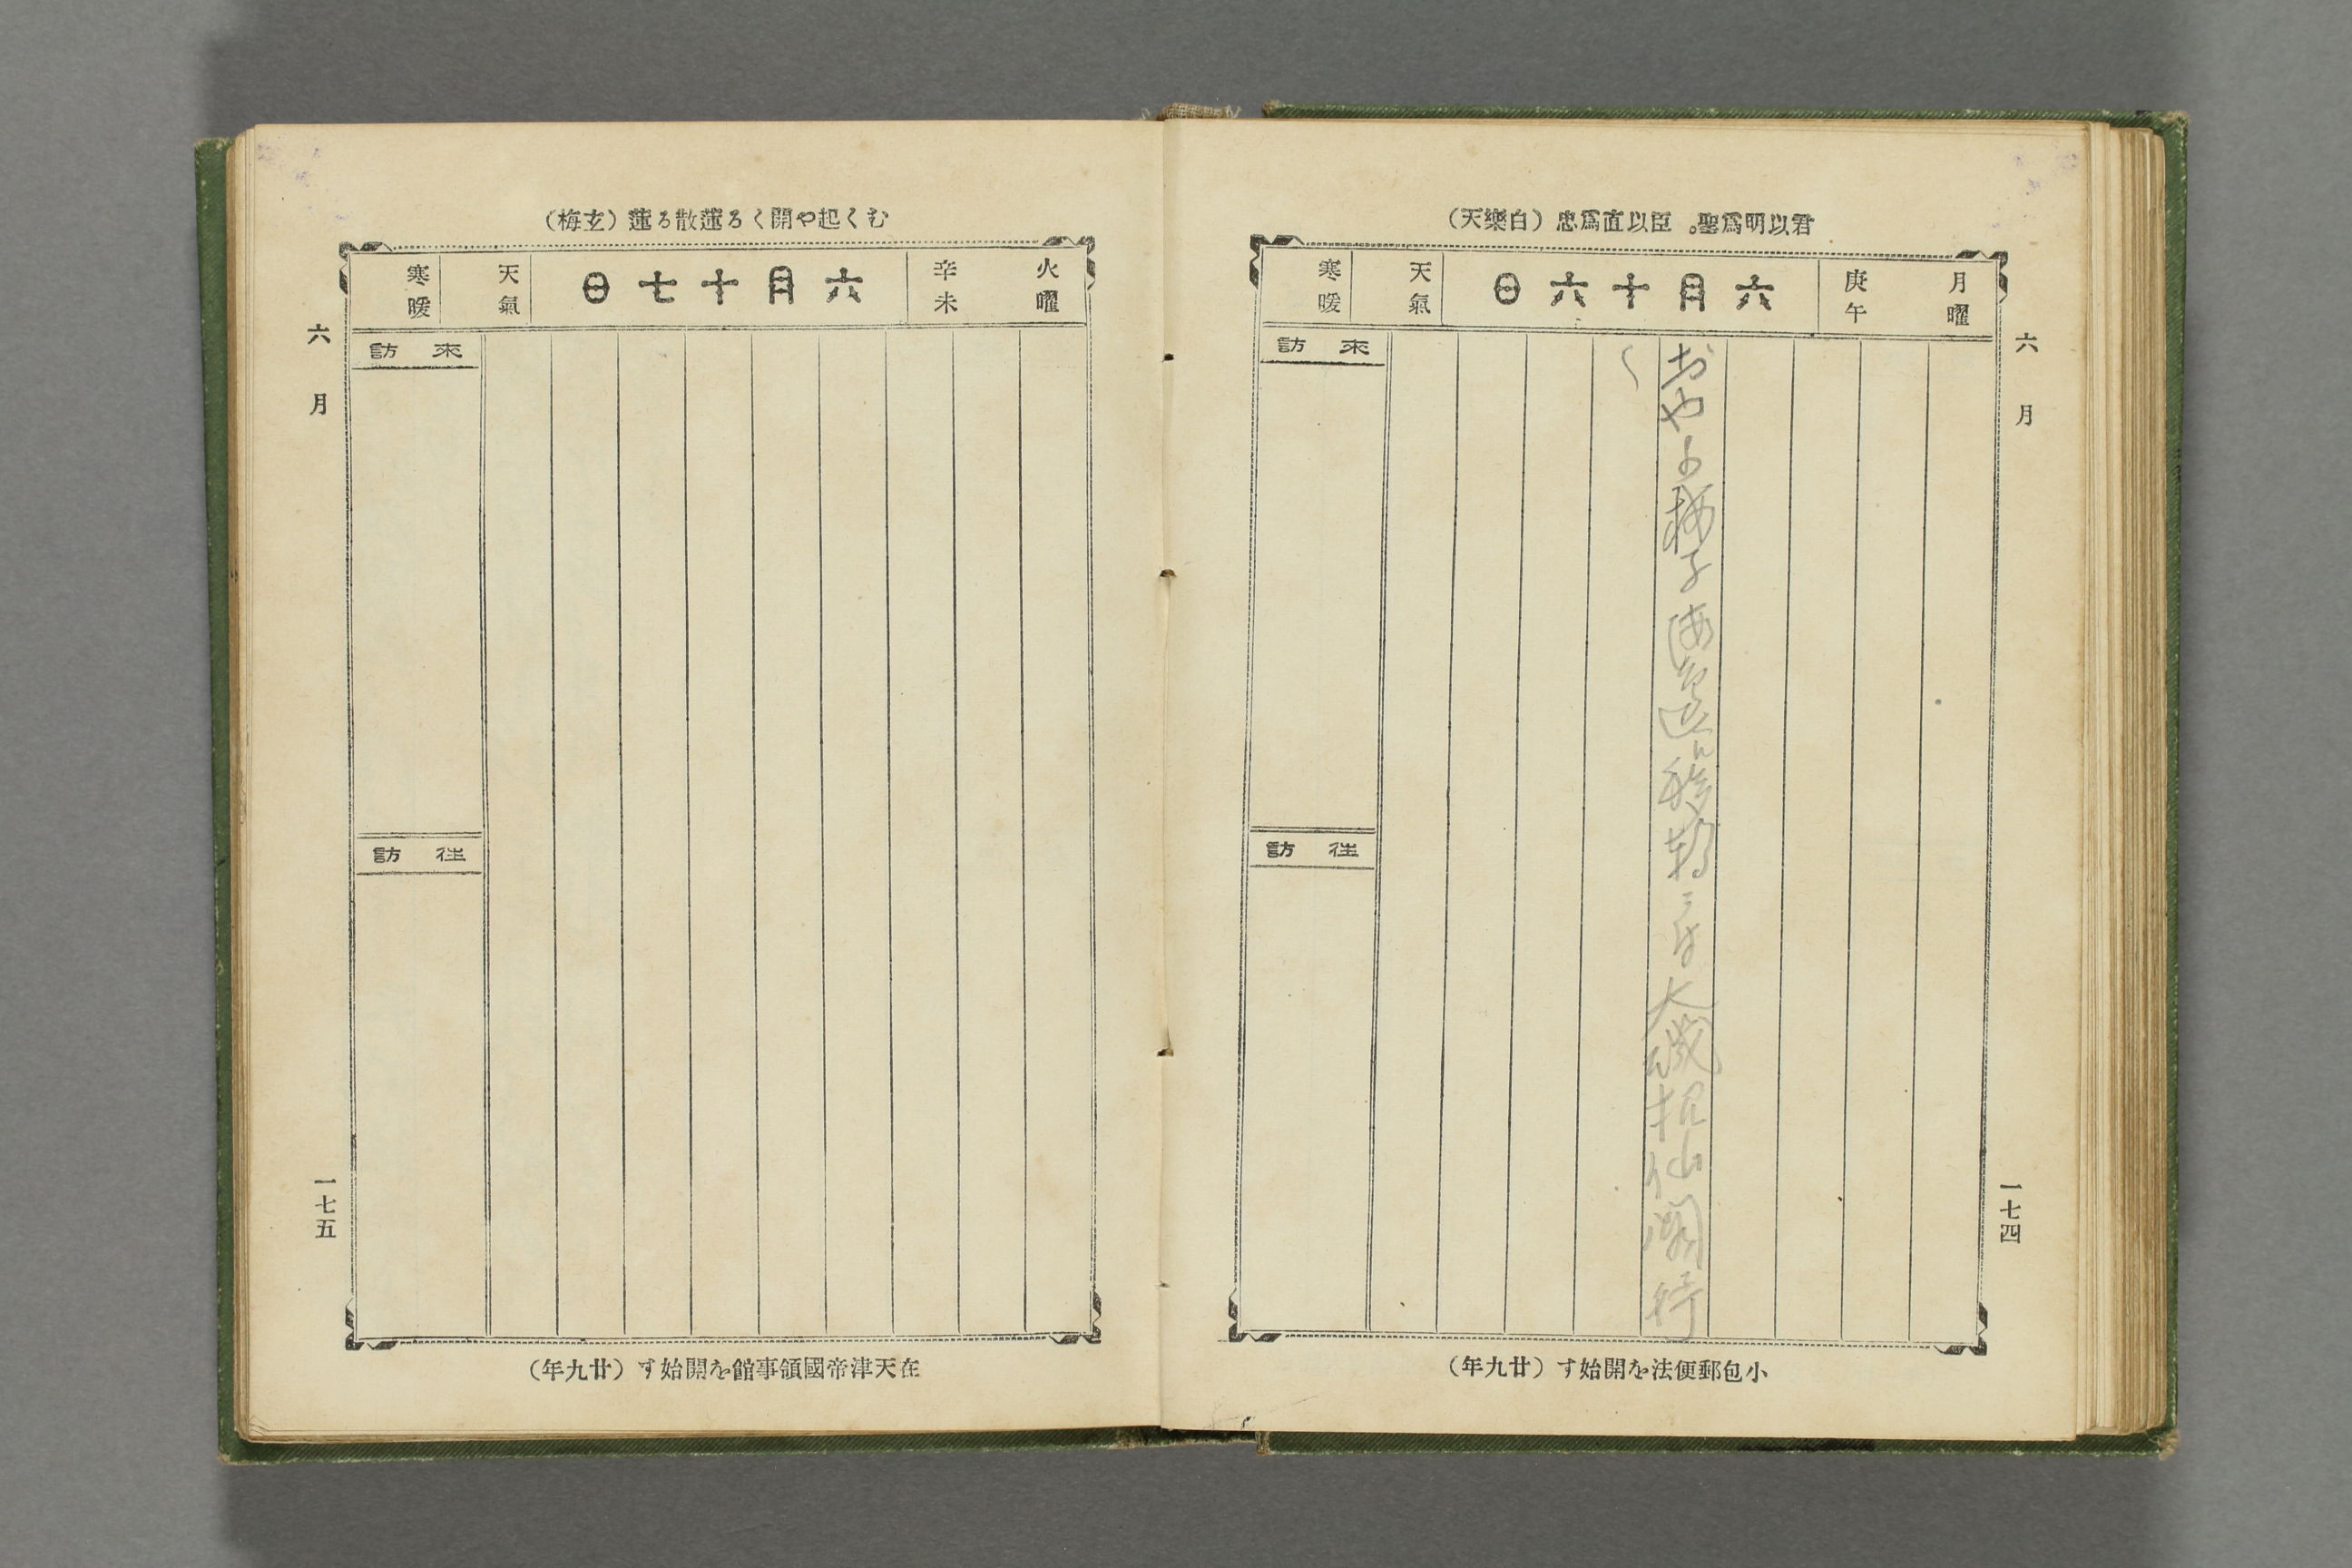 君以明爲聖。臣以直爲忠（白樂天）
月曜
庚午
六月十六日
天氣
寒暖
大磯招仙閣行
來訪
往訪
六月
一七四
小包郵便法を開始す（廿九年）
むく起や開くる蓮散る蓮（玄梅）
火曜
辛未
六月十七日
天氣
寒暖
來訪
往訪
六月
一七五
在天津帝國領事館を開始す（廿九年）